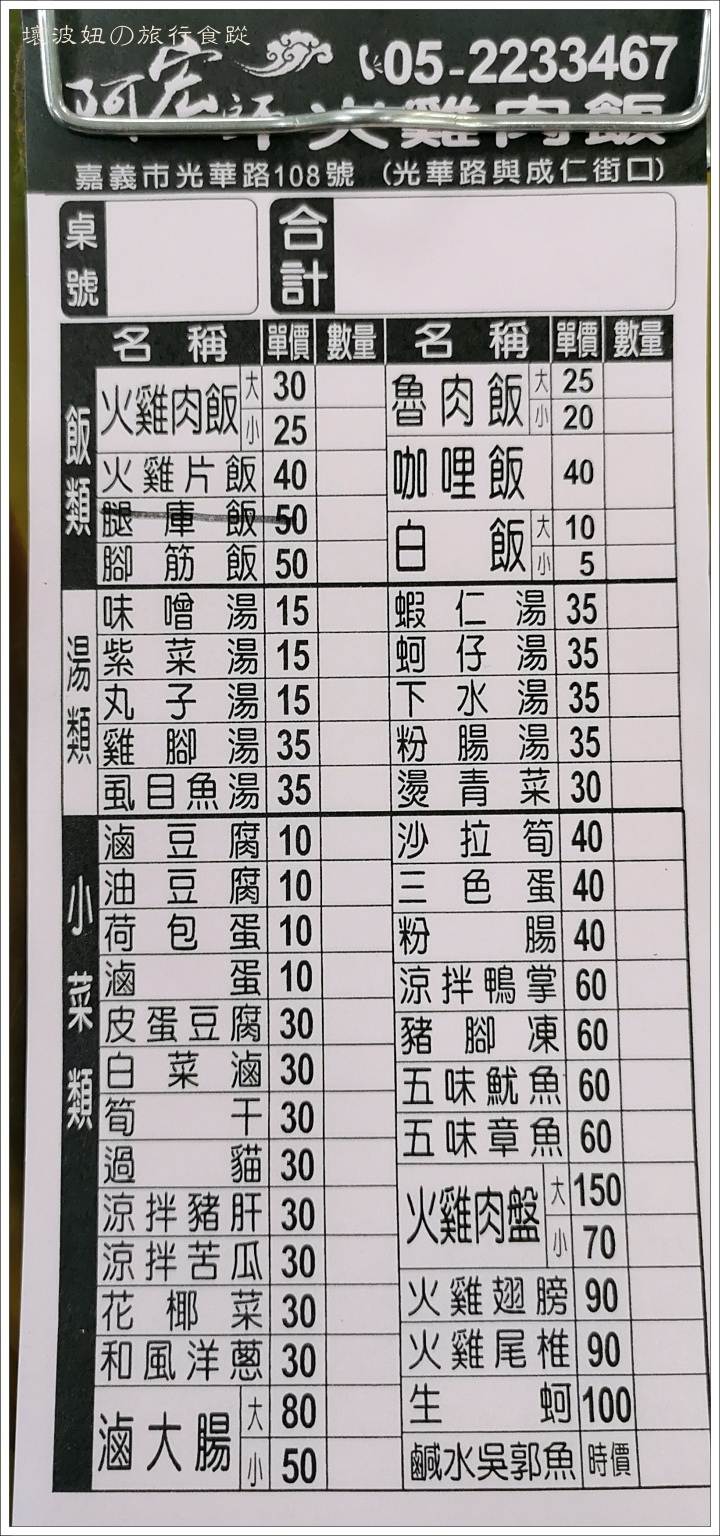 壞波妞の旅行食蹤
05-2233467
阿宏師火雞肉飯
嘉義市光華路108號 (光華路與成仁街口)
桌號
合計
名稱 單價 數量 名稱 單價 數量
飯類
火雞肉飯 大 30
小 25
火雞片飯 40
腿庫飯 50
腳筋飯 50
魯肉飯 大 25
小 20
咖哩飯 40
白飯 大 10
小 5
湯類
味噌湯 15
紫菜湯 15
丸子湯 15
雞腳湯 35
虱目魚湯 35
蝦仁湯 35
蚵仔湯 35
下水湯 35
粉腸湯 35
燙青菜 30
小菜類
滷豆腐 10
油豆腐 10
荷包蛋 10
滷蛋 10
皮蛋豆腐 30
白菜滷 30
筍干 30
過貓 30
涼拌豬肝 30
涼拌苦瓜 30
花椰菜 30
和風洋蔥 30
滷大腸 大 80
小 50
沙拉筍 40
三色蛋 40
粉腸 40
涼拌鴨掌 60
豬腳凍 60
五味魷魚 60
五味章魚 60
火雞肉盤 大 150
小 70
火雞翅膀 90
火雞尾椎 90
生蚵 100
鹹水吳郭魚 時價